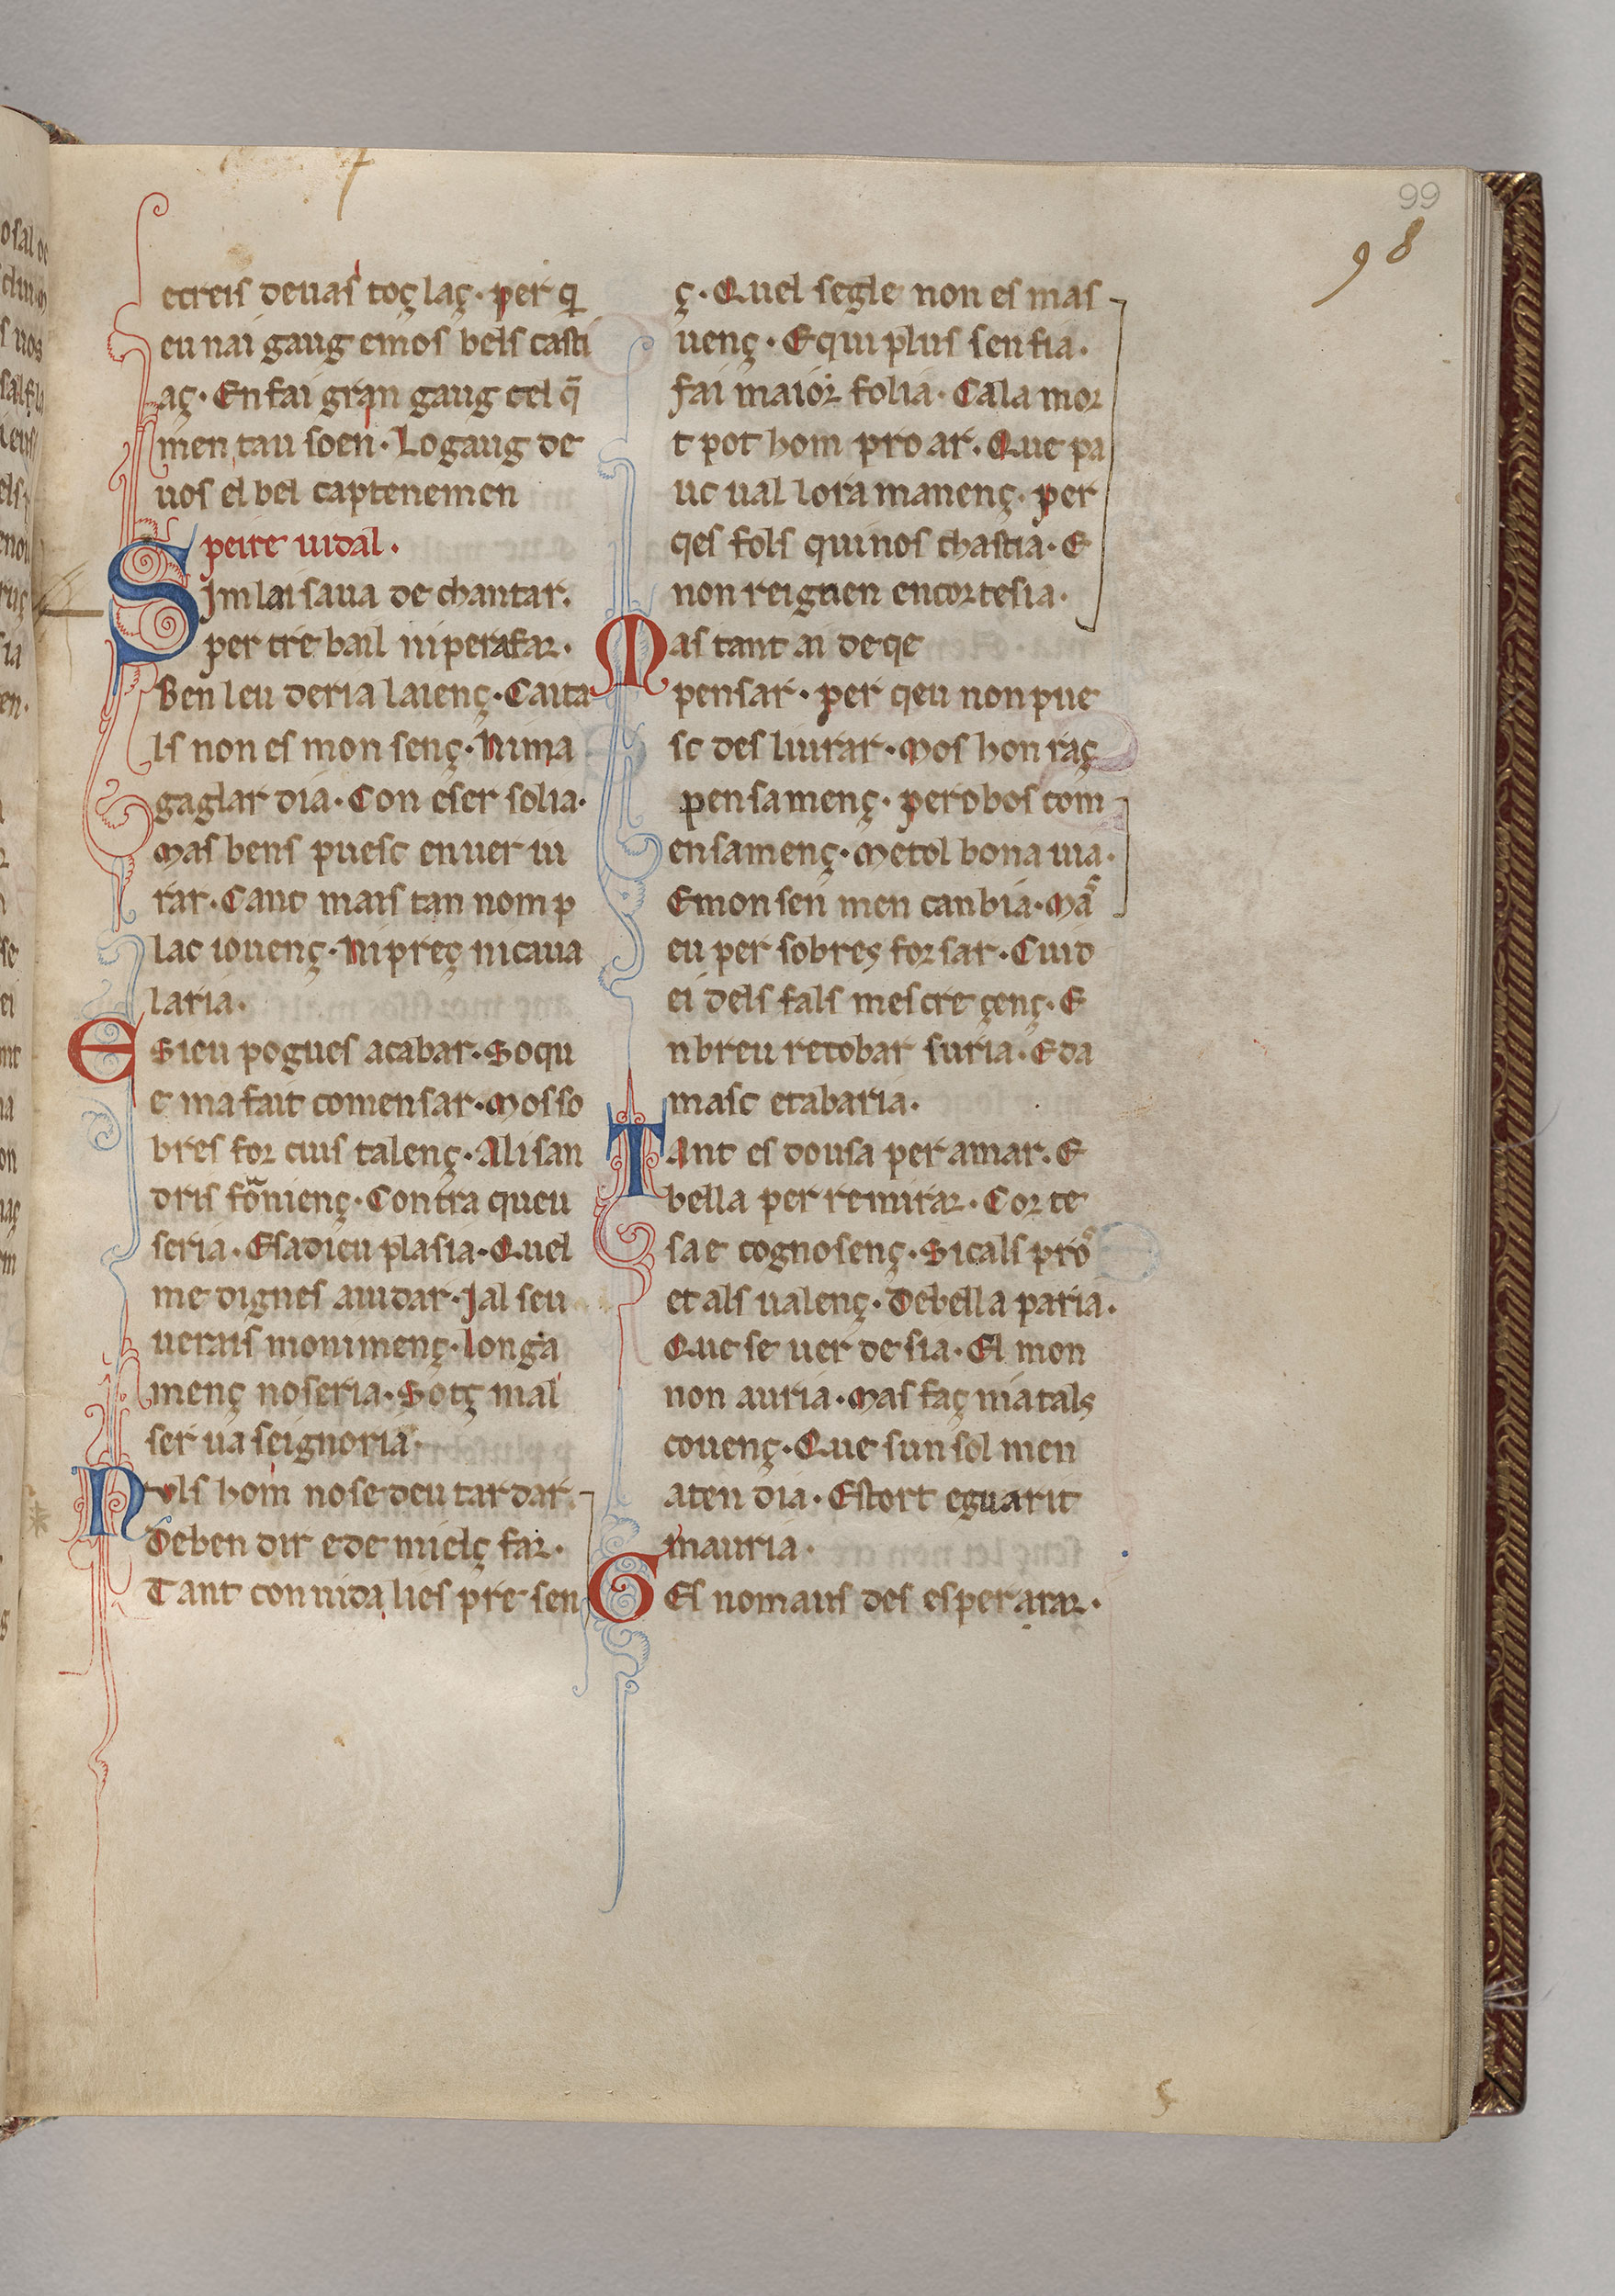 99
98
ecreis deuas toç laç· per q̄
eu nai gaug emos bels casti
aç· En fai gran gaug cel q̄
men tau soen· Lo gaug de
uos el bel captenemen
peire uidal.
Sim laisaua de chantar.
per tre bail ni per afar.
Ben leu deria la ienç· Cauta
ls non es mon senç· Ni ma
gaglar dia· Con eser solia·
Mas bens puesc en uer iu
rar· Canc mais tan nom p
lac iouenç· Ni preç ni caua
laria.
E Sieu pogues acabar· So qu
e ma fait comensar· Mos so
bres for ciuis talenç· Alisan
dris fo nienç· Contra queu
seria· E sa dieu plasia· Quel
me dignes aiudar· Ial seu
uerais monimenç· longa
menç no seria· Sotç mal
ser ua seignoria·
Nuls hom no se deu tardar
De ben dir e de mielç far·
Tant con uida lies pre sen
ç· Quel segle non es mas
uenç· E qui plus sen fia·
fai maior folia· Cala mor
t pot hom pro ar· Que pa
uc ual lora manenç· per
qes fols qui nos chastia· E
non reignen en cortesia·
Mas tant ai de qe
pensar· per qeu non pue
sc des liurar· Mos hon raç
pensamenç· pero bos com
ensamenç· Metol bona uia·
E mon sen men canbia· Mas
eu per sobres forsar· Cuid
ei dels fals mes cre çenç· E
n breu recobar suria· E da
masc etabaria·
TAnt es dousa per amar· E
bella per remirar· Cor te
sa e cognosenç· Si cals pros
et als ualenç· De bella paria·
Que se uer desia· El mon
non auria· Mas faç mia tals
couenç· Que sun sol men
aten dia· Estort e guarit
mauria·
GEs nomaus des esperarar·